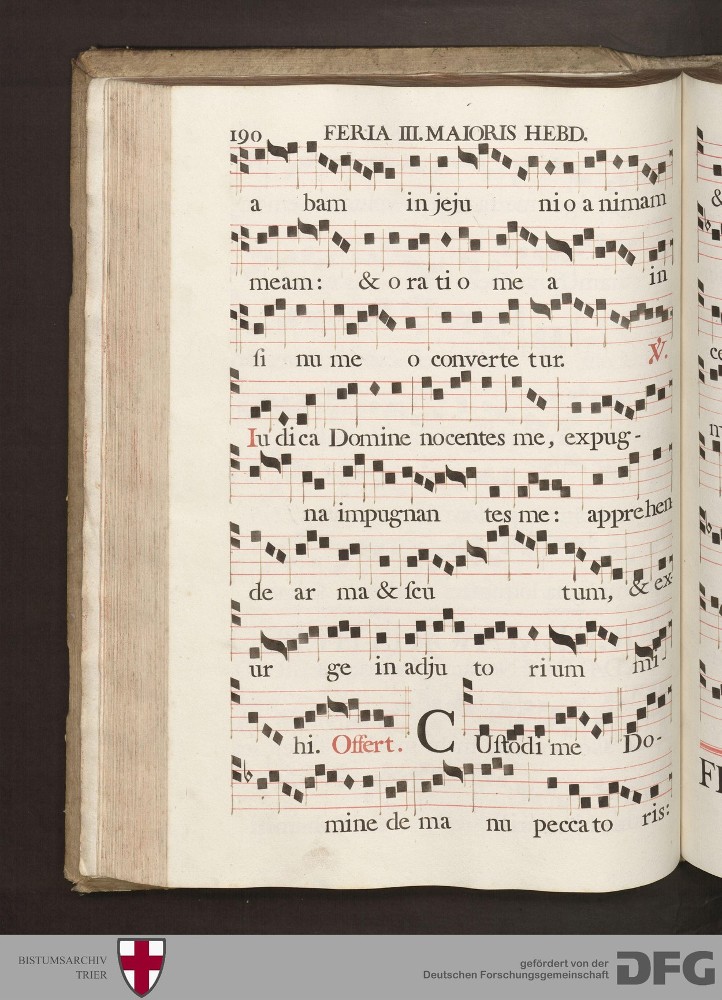 190 FERIA III. MAIORIS HEBD.
a bam in jeju ni o a nimam
meam: & o ra ti o me a in
ſi nu me o converte tur. ℣.
Iu di ca Domine nocentes me, expug-
na impugnan tes me: apprehen
de ar ma & ſcu tum, & ex-
ur ge in adju to rium mi-
hi. Offert. CUſtodi me Do-
mine de ma nu pecca to ris:
BISTUMSARCHIV
TRIER
gefördert von der
Deutschen Forschungsgemeinschaft
DFG